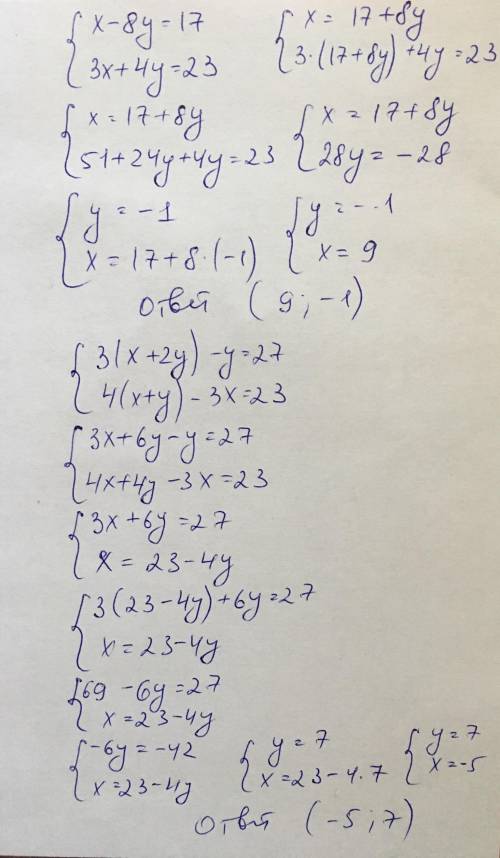 x-8y=17 x= 17+8y
3x+4y=23 3·(17+8y)+4y=23
x=17+8y x=17+8y
51+24y+4y=23 28y=-28
y=-1 y=-1
x=17+8·(-1) x=9
Ответ (9;-1)
3(x+2y)-y=27
4(x+y)-3x=23
3x+6y-y=27
4x+4y-3x=23
3x+6y=27
x=23-4y
3(23-4y)+6y=27
x=23-4y
69-6y=27
x=23-4y
-6y=-42 y=7 y=7
x=23-4y x=23-4·7 x=-5
Ответ (-5;7)